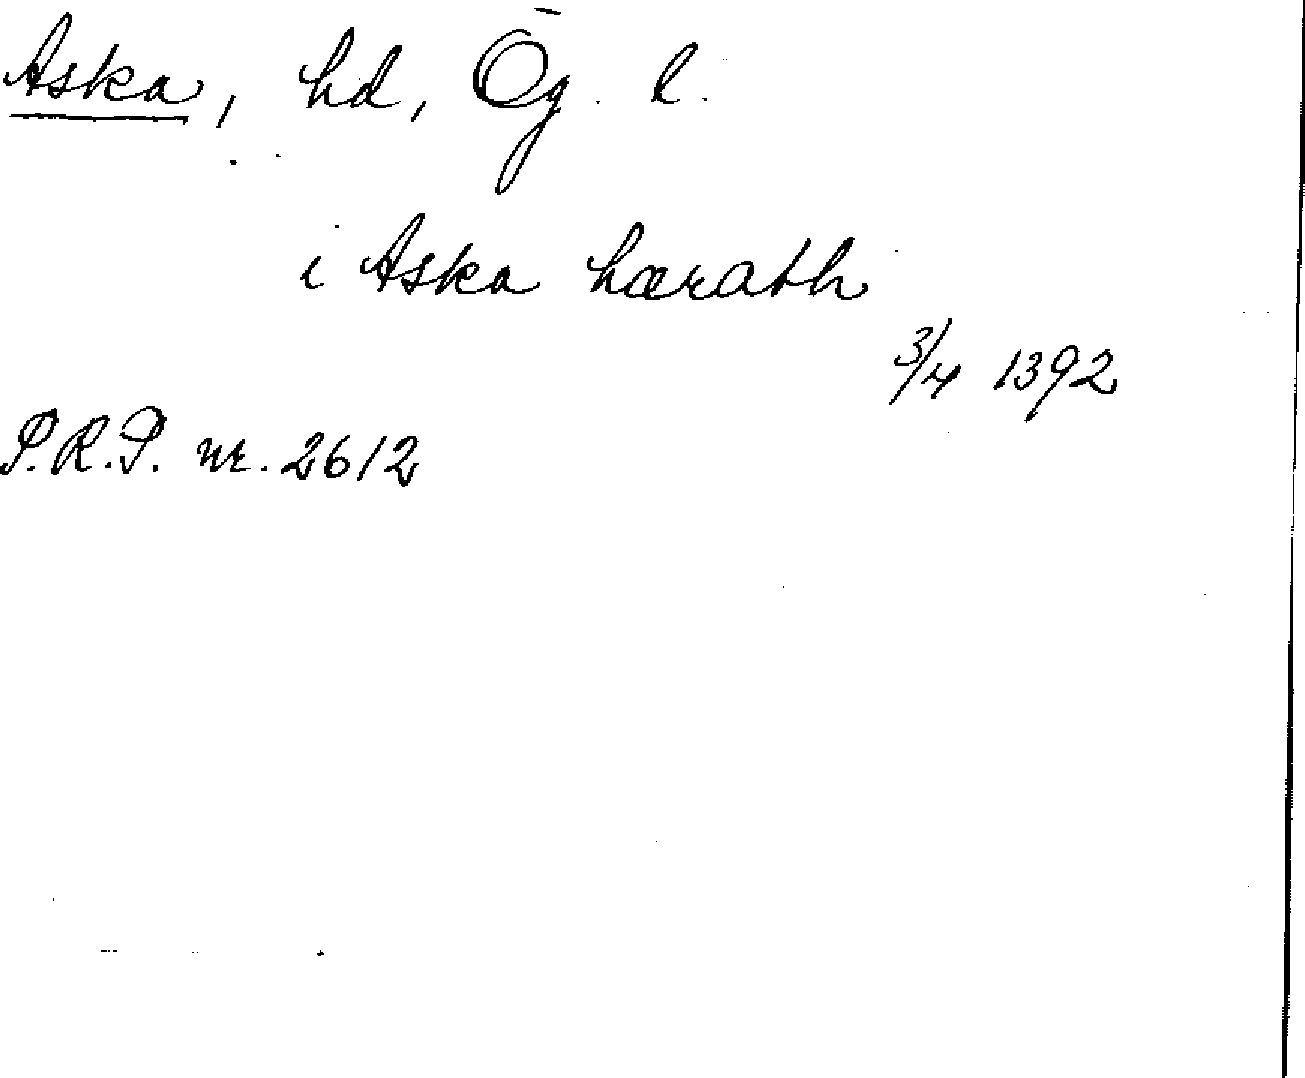 Aska, hd, Ög. l.
i Aska hærath
3/4 1392
P.R.P. nr. 2612